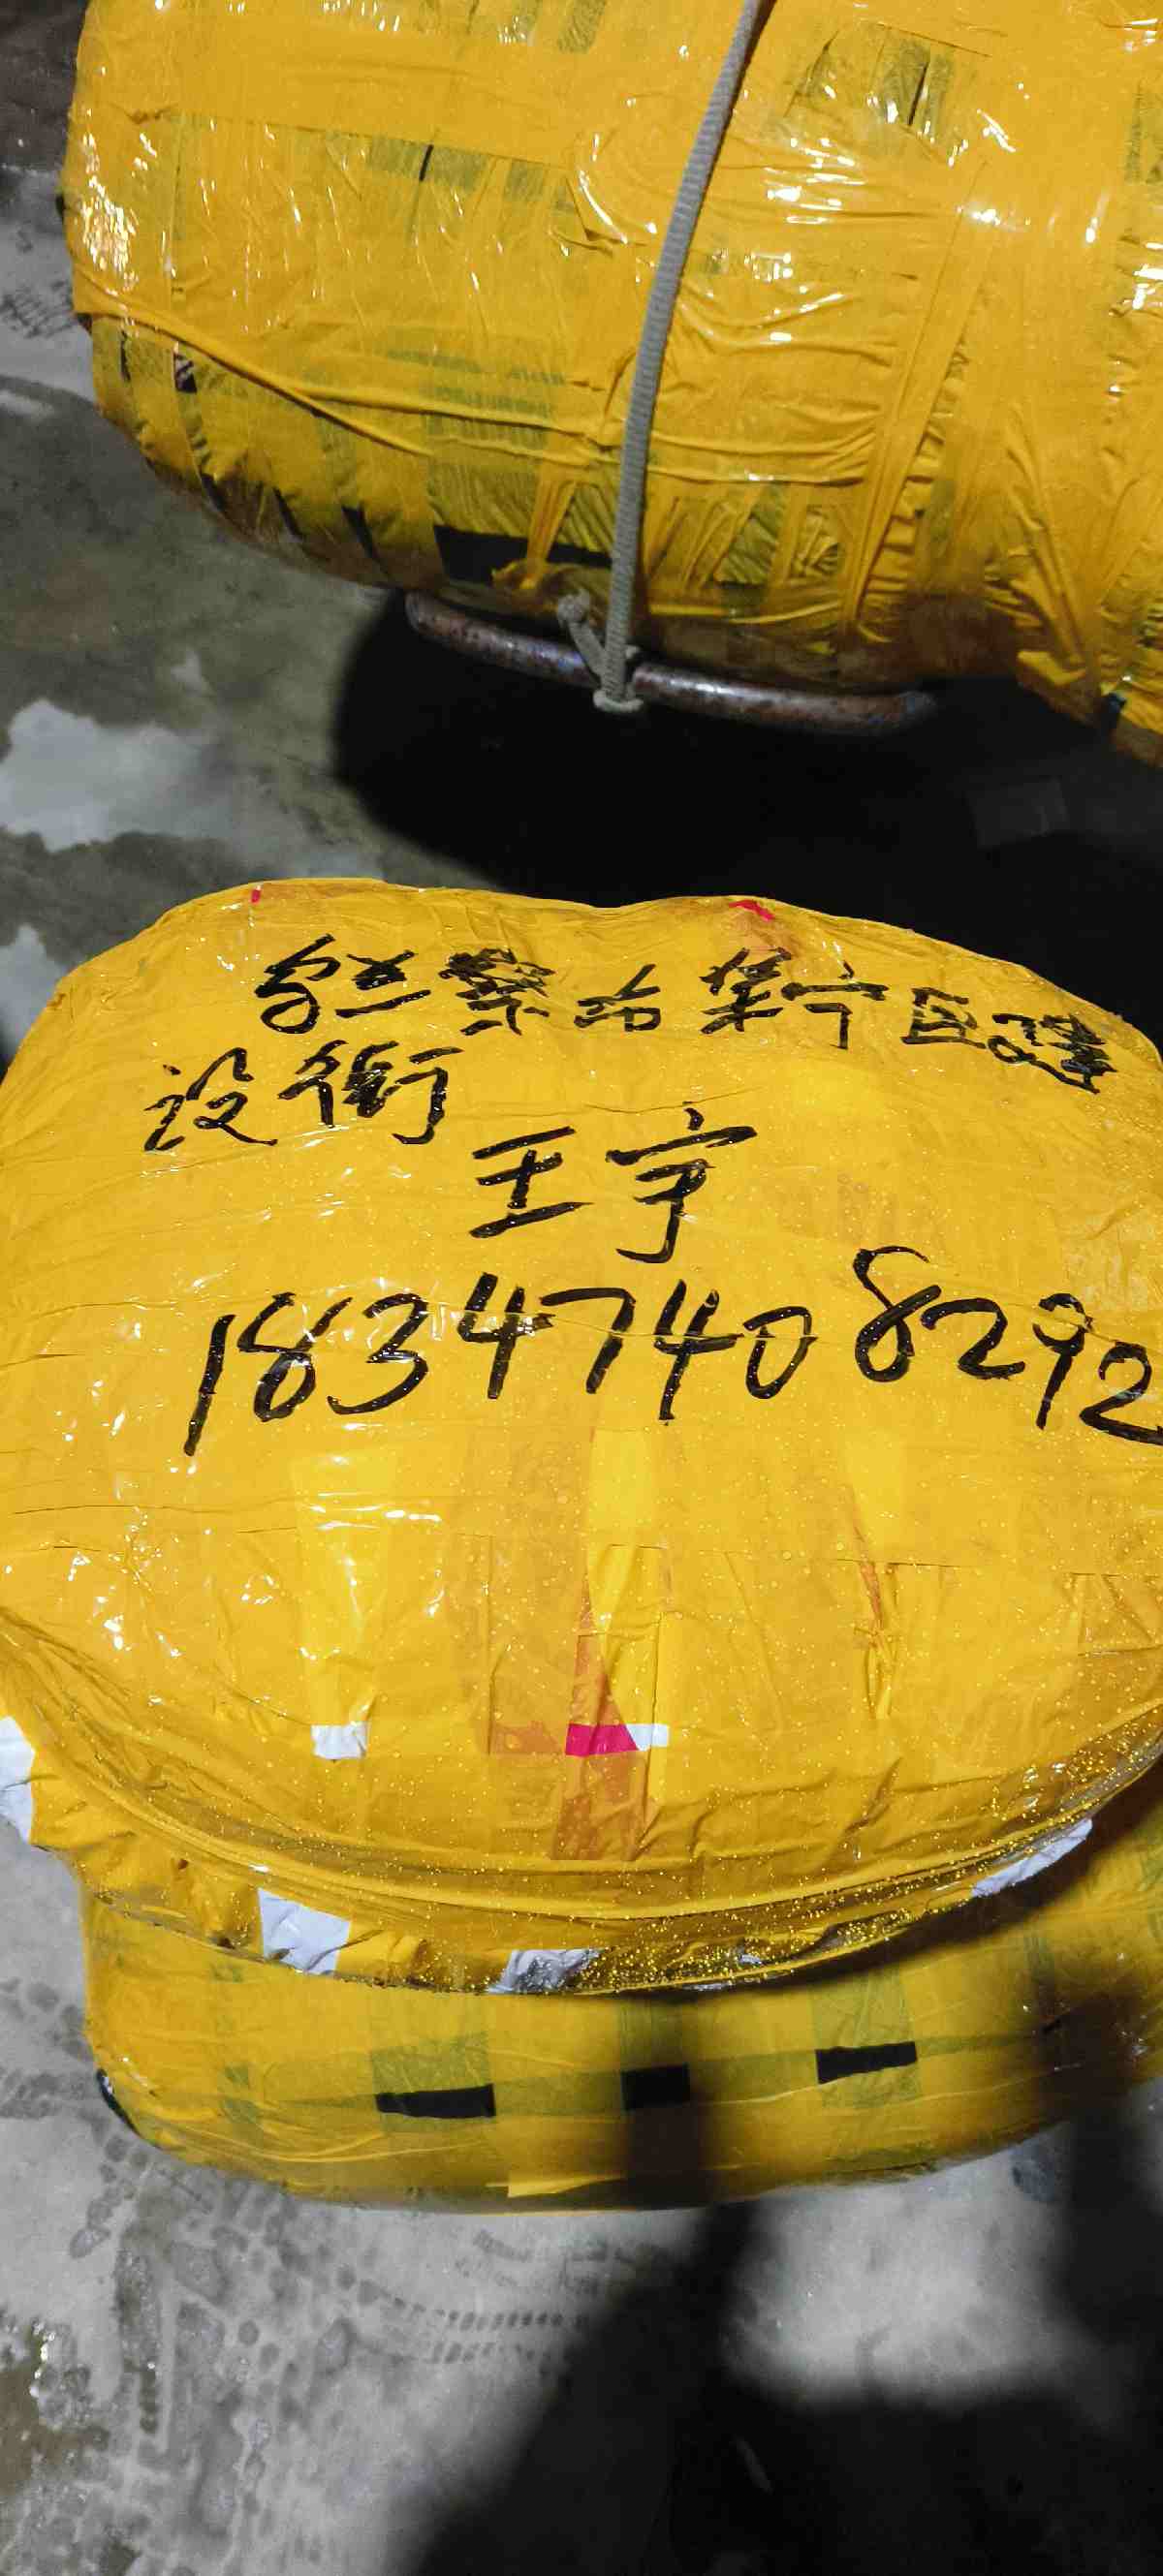 乌兰察布集宁区建
设街
王宇
18347408292